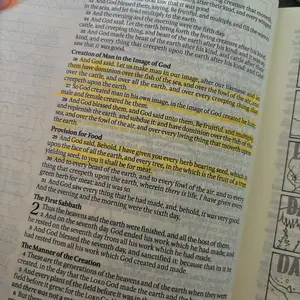 And God blessed them, saying, Be fruitful, and multiply, and fill the
seas, and let fowl multiply in the earth.
And the evening and the morning were the fifth day.
And God said, Let the earth bring forth the living
cattle, and creeping thing, and beast of the earth after his kind
And God made the beast of the earth after his kind, and cattle after
kind, and every thing that creepeth upon the earth after his kind: and God
saw that it was good.
Creation of Man in the Image of God
26 And God said, Let us make man in our image, after our likeness: and let
them have dominion over the fish of the sea, and over the fowl of the air, and
over the cattle, and over all the earth, and over every creeping thing that
creepeth upon the earth.
27 So God created man in his own image, in the image of God created he him;
male and female created he them.
28 And God blessed them, and God said unto them, Be fruitful, and multiply,
and replenish the earth, and subdue it: and have dominion over the fish of the
sea, and over the fowl of the air, and over every living thing that moveth upon
the earth.
Provision for Food
29 And God said, Behold, I have given you every herb bearing seed, which is
upon the face of all the earth, and every tree, in the which is the fruit of a tree
yielding seed; to you it shall be for meat.
30 And to every beast of the earth, and to every fowl of the air, and to every
thing that creepeth upon the earth, wherein there is life, I have given every
green herb for meat: and it was so.
31 And God saw every thing that he had made, and, behold, it was very good.
And the evening and the morning were the sixth day.
The First Sabbath
2 Thus the heavens and the earth were finished, and all the host of them.
2 And on the seventh day God ended his work which he had made; and he
rested on the seventh day from all his work which he had made.
3 And God blessed the seventh day, and sanctified it: because that in it he
had rested from all his work which God created and made.
The Manner of the Creation
4 These are the generations of the heavens and of the earth when they were